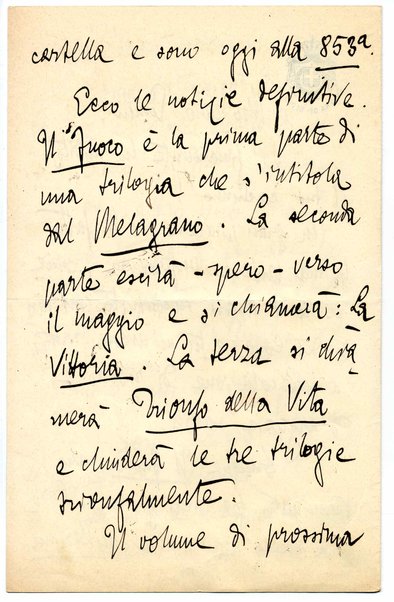 cartella e sono oggi alla 853a.
Ecco le notizie definitive.
Il Fuoco è la prima parte di
una trilogia che s'intitola
dal Melagrano. La seconda
parte escirà - spero - verso
il maggio e si chiamerà: La
Vittoria. La terza si chia
merà Trionfo della Vita
e chiuderà le tre trilogie
trionfalmente.
Il volume di prossima